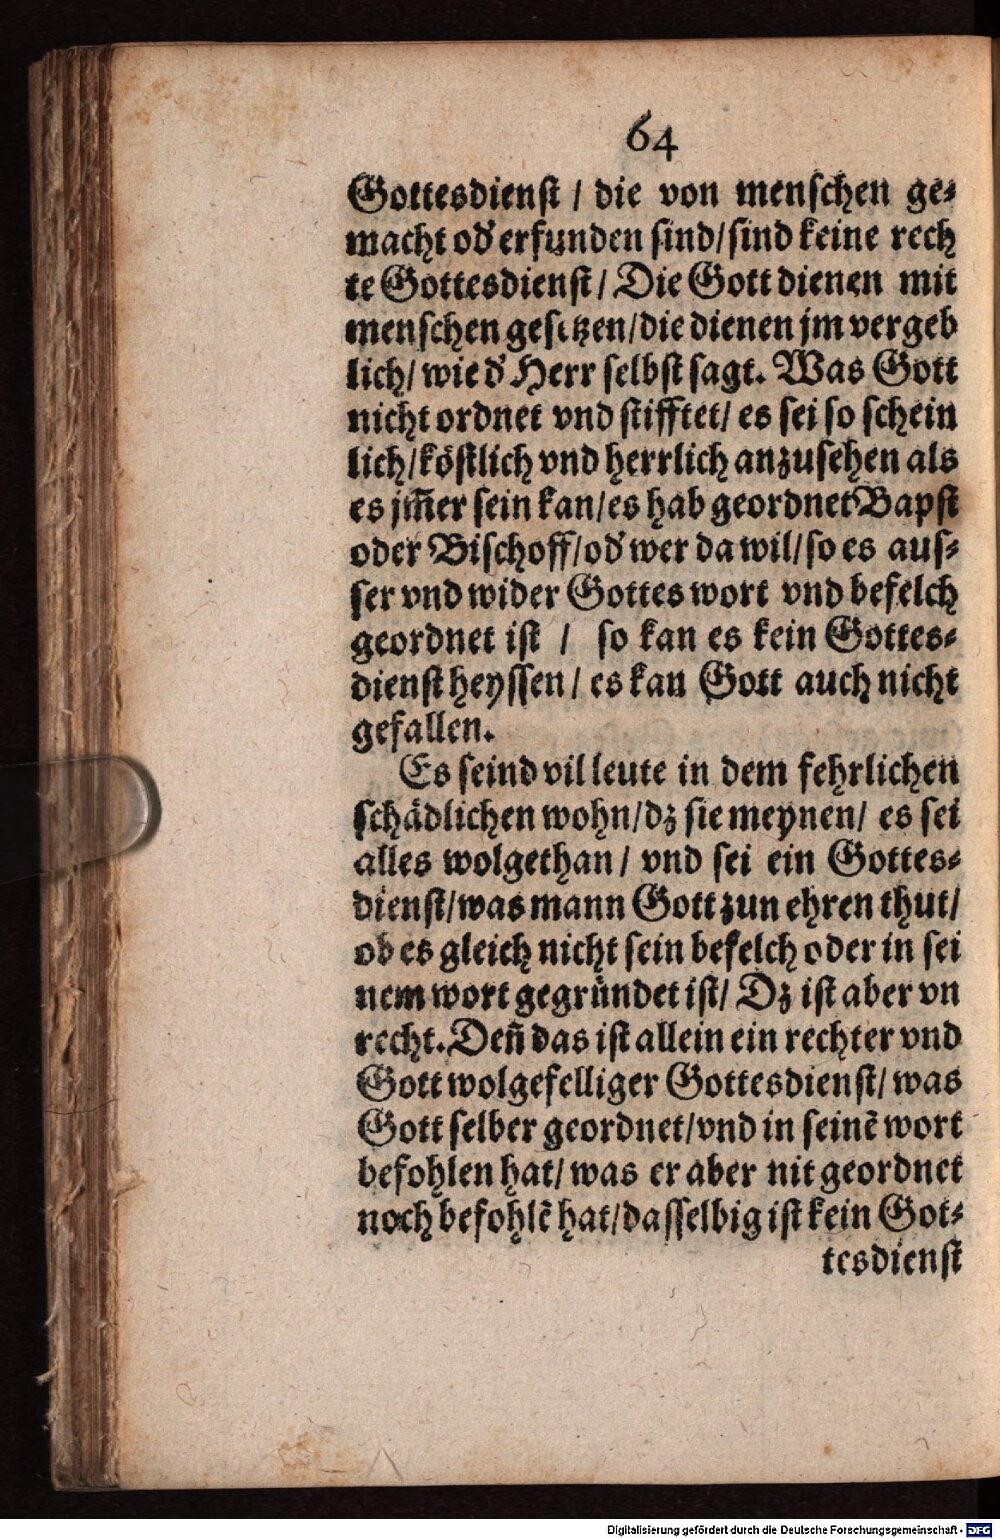 64
Gottesdienst / die von menschen ge⸗
macht od' erfunden sind/sind keine rech
te Gottesdienst/ Die Gott dienen mit
menschen gesetzen/die dienen jm vergeb
lich/ wie d' Herr selbst sagt. Was Gott
nicht ordnet vnd stifftet/ es sei so schein
lich/köstlich vnd herrlich anzusehen als
es jm̃er sein kan/es hab geordnet Bapst
oder Bischoff/od' wer da wil/so es aus⸗
ser vnd wider Gottes wort vnd befelch
geordnet ist / so kan es kein Gottes⸗
dienst heyssen/ es kan Gott auch nicht
gefallen.
Es seind vil leute in dem fehrlichen
schädlichen wohn/dz sie meynen/ es sei
alles wolgethan/ vnd sei ein Gottes⸗
dienst/was mann Gott zun ehren thut/
ob es gleich nicht sein befelch oder in sei
nem wort gegründet ist/ Dz ist aber vn
recht. Den̄ das ist allein ein rechter vnd
Gott wolgefelliger Gottesdienst/ was
Gott selber geordnet/vnd in seinẽ wort
befohlen hat/ was er aber nit geordnet
noch befohlẽ hat/dasselbig ist kein Got⸗
tesdienst
Digitalisierung gefördert durch die Deutsche Forschungsgemeinschaft - DFG